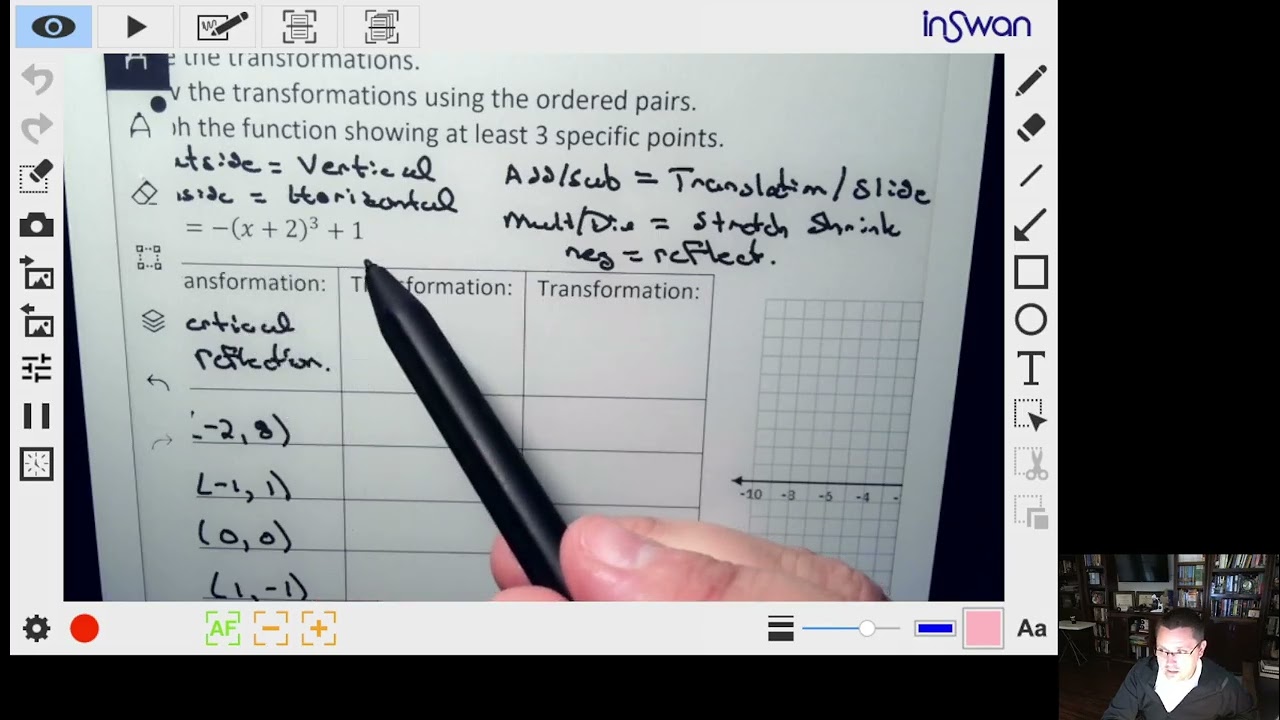 inSwan
e the transformations.
w the transformations using the ordered pairs.
ph the function showing at least 3 specific points.
utside = Vertical
Add/sub = Translation/slide
nside = Horizontal
Mult/Div = Stretch Shrink
= −(x + 2)³ + 1
neg = reflect.
ansformation:
T sformation:
Transformation:
ertical
reflection.
(-2, 8)
(-1, 1)
(0, 0)
(1, -1)
-10 -8 -6 -4 -
AF
T
Aa